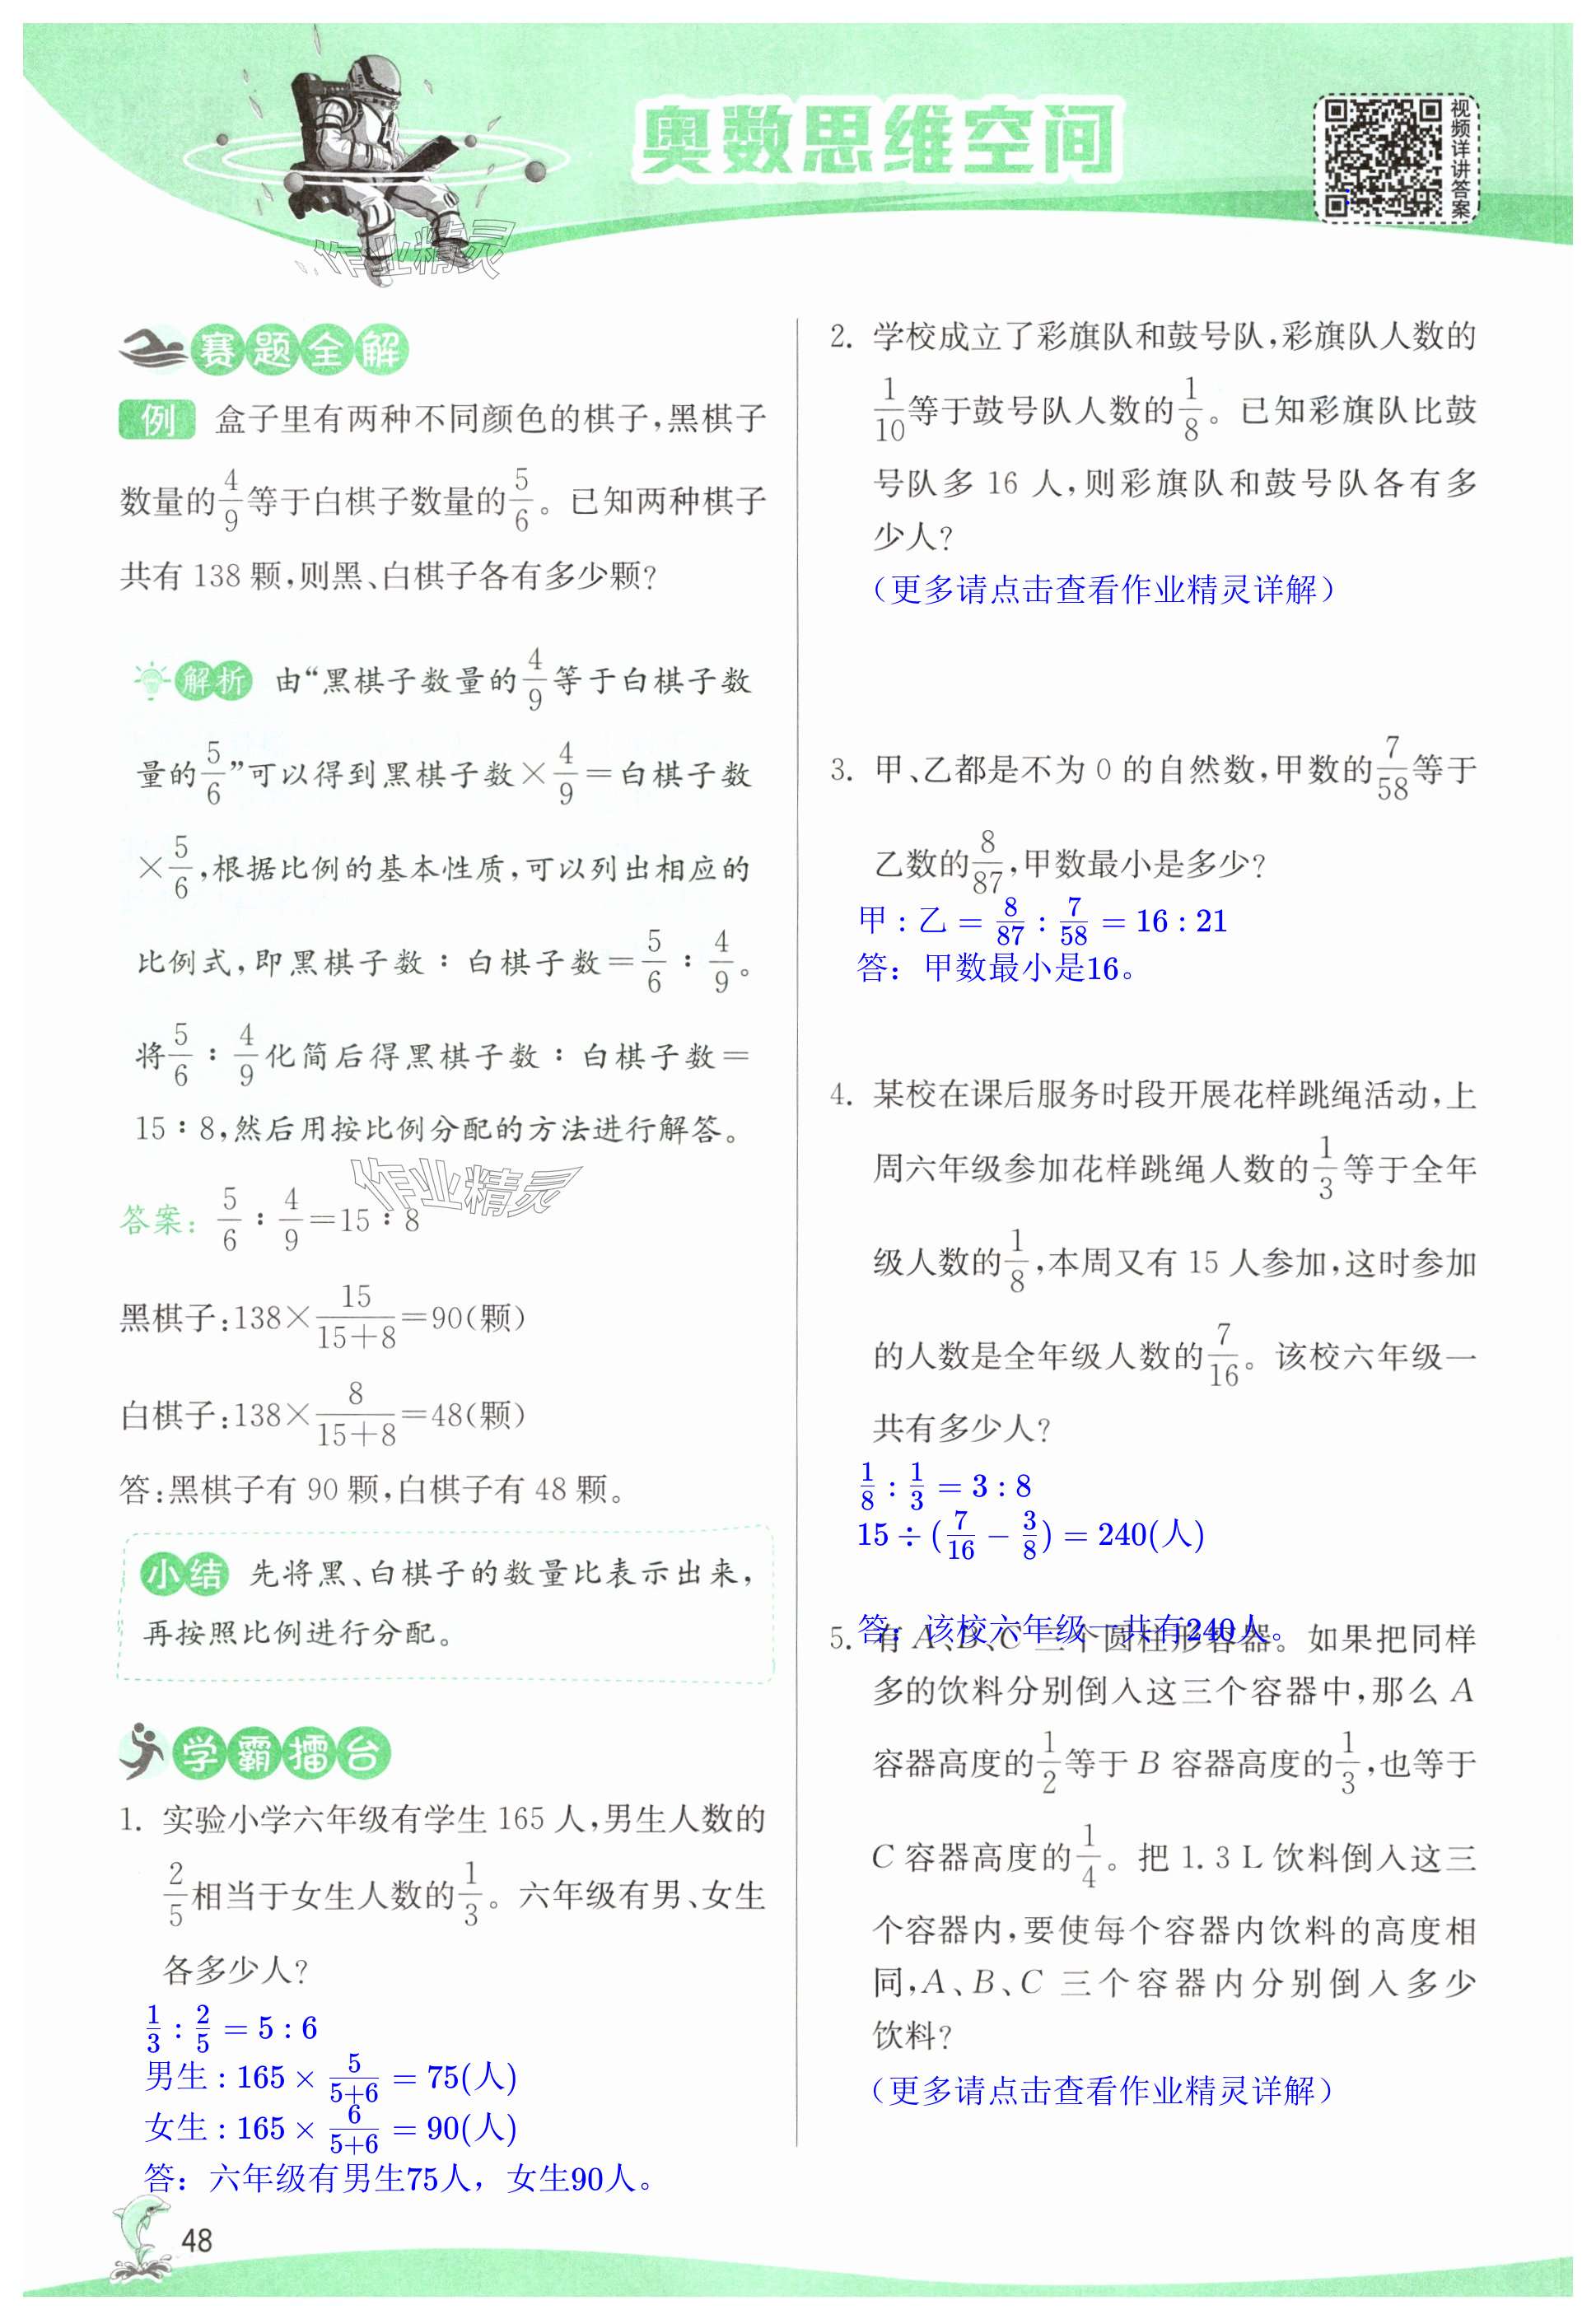 奥数思维空间
视频详讲答案
作业精灵
赛题全解
例 盒子里有两种不同颜色的棋子,黑棋子
数量的4/9等于白棋子数量的5/6。已知两种棋子
共有 138 颗,则黑、白棋子各有多少颗?
解析 由“黑棋子数量的4/9等于白棋子数
量的5/6”可以得到黑棋子数×4/9=白棋子数
×5/6,根据比例的基本性质,可以列出相应的
比例式,即黑棋子数∶白棋子数=5/6∶4/9。
将5/6∶4/9化简后得黑棋子数∶白棋子数=
15∶8,然后用按比例分配的方法进行解答。
作业精灵
答案: 5/6∶4/9=15∶8
黑棋子:138×15/(15+8)=90(颗)
白棋子:138×8/(15+8)=48(颗)
答:黑棋子有 90 颗,白棋子有 48 颗。
小结 先将黑、白棋子的数量比表示出来,
再按照比例进行分配。
学霸擂台
1. 实验小学六年级有学生 165 人,男生人数的
2/5相当于女生人数的1/3。六年级有男、女生
各多少人?
1/3 : 2/5 = 5 : 6
男生 : 165 × 5/(5+6) = 75(人)
女生 : 165 × 6/(5+6) = 90(人)
答：六年级有男生75人，女生90人。
48
2. 学校成立了彩旗队和鼓号队,彩旗队人数的
1/10等于鼓号队人数的1/8。已知彩旗队比鼓
号队多 16 人,则彩旗队和鼓号队各有多
少人?
（更多请点击查看作业精灵详解）
3. 甲、乙都是不为 0 的自然数,甲数的7/58等于
乙数的8/87,甲数最小是多少?
甲 : 乙 = 8/87 : 7/58 = 16 : 21
答：甲数最小是16。
4. 某校在课后服务时段开展花样跳绳活动,上
周六年级参加花样跳绳人数的1/3等于全年
级人数的1/8,本周又有 15 人参加,这时参加
的人数是全年级人数的7/16。该校六年级一
共有多少人?
1/8 : 1/3 = 3 : 8
15 ÷ (7/16 − 3/8) = 240(人)
答：该校六年级一共有240人。
5. 有 A、B、C 三个圆柱形容器。如果把同样
多的饮料分别倒入这三个容器中,那么 A
容器高度的1/2等于 B 容器高度的1/3,也等于
C 容器高度的1/4。把 1.3 L 饮料倒入这三
个容器内,要使每个容器内饮料的高度相
同,A、B、C 三个容器内分别倒入多少
饮料?
（更多请点击查看作业精灵详解）